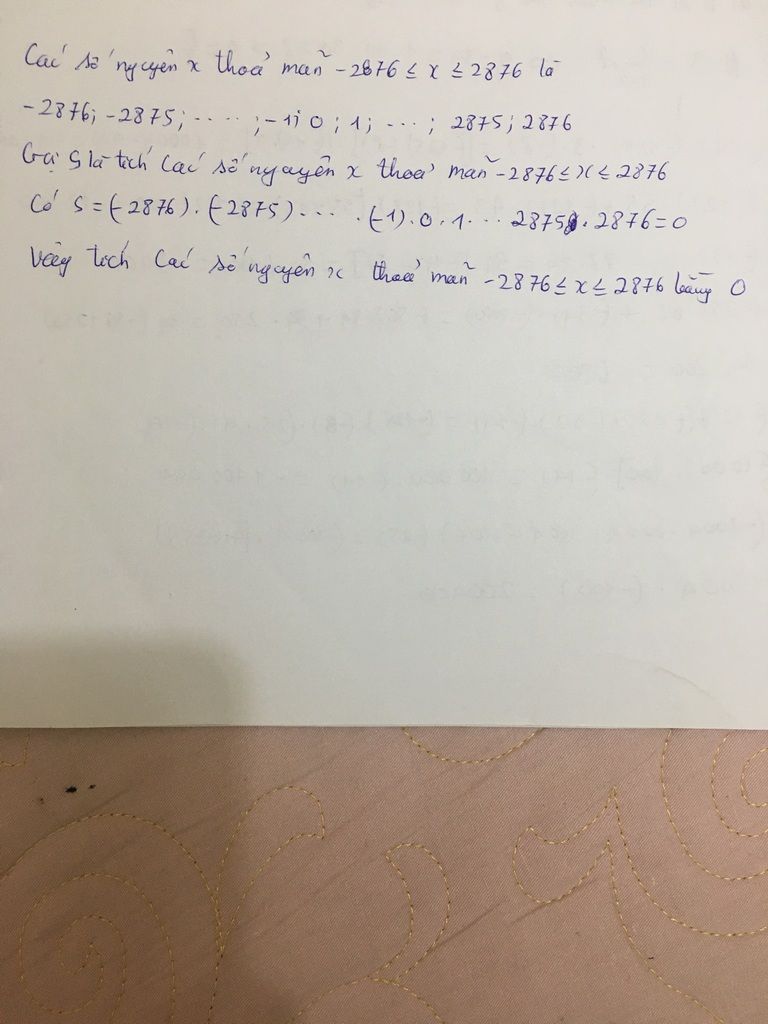 Các số nguyên x thoả mãn -2876 ≤ x ≤ 2876 là
-2876; -2875; .....; -1; 0; 1; ...; 2875; 2876
Gọi S là tích các số nguyên x thoả mãn -2876 ≤ x ≤ 2876
Có S = (-2876). (-2875). ... . (-1). 0. 1. .. 2875. 2876 = 0
Vậy tích các số nguyên x thoả mãn -2876 ≤ x ≤ 2876 bằng 0